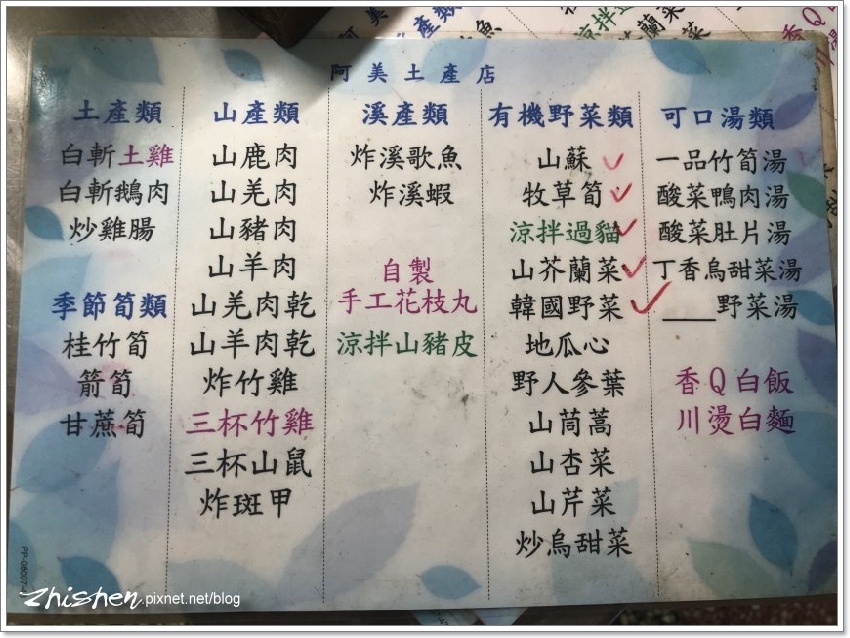 阿美土產店
土產類
白斬土雞
白斬鵝肉
炒雞腸
季節筍類
桂竹筍
箭筍
甘蔗筍
山產類
山鹿肉
山羌肉
山豬肉
山羊肉
山羌肉乾
山羊肉乾
炸竹雞
三杯竹雞
三杯山鼠
炸斑甲
溪產類
炸溪歌魚
炸溪蝦
自製
手工花枝丸
涼拌山豬皮
有機野菜類
山蘇
牧草筍
涼拌過貓
山芥蘭菜
韓國野菜
地瓜心
野人參葉
山茼蒿
山杏菜
山芹菜
炒烏甜菜
可口湯類
一品竹筍湯
酸菜鴨肉湯
酸菜肚片湯
丁香烏甜菜湯
___野菜湯
香Q白飯
川燙白麵
zhishen.pixnet.net/blog